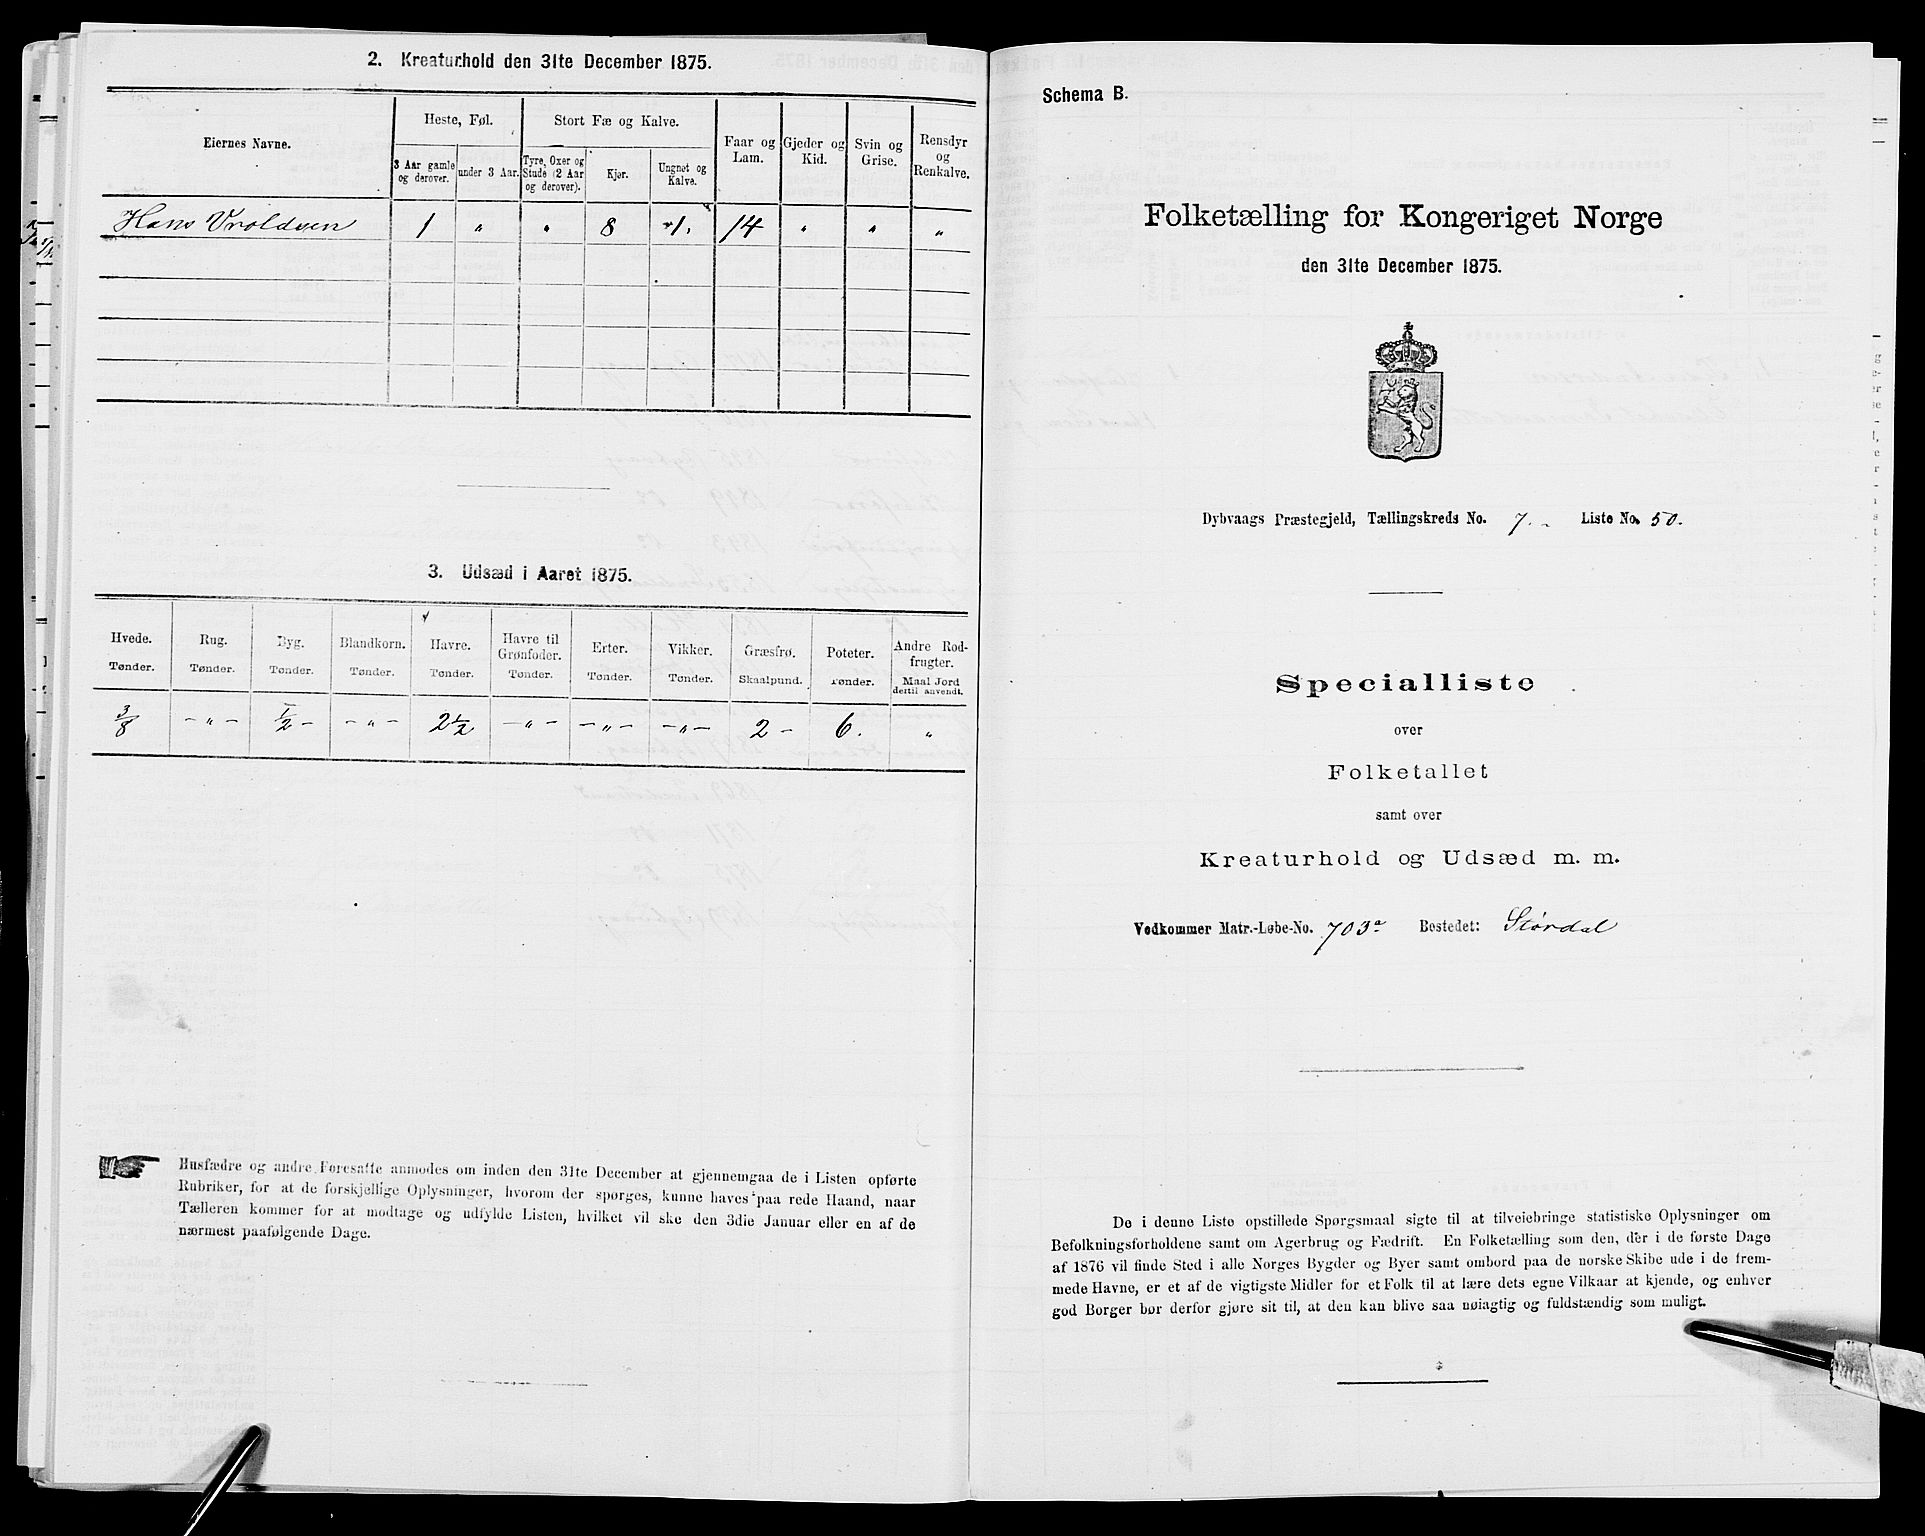 2. Kreaturhold den 31te December 1875.
Eiernes Navne.
Heste, Føl.
Stort Fæ og Kalve.
Faar og Lam.
Gjeder og Kid.
Svin og Grise.
Rensdyr og Renkalve.
3 Aar gamle og derover.
under 3 Aar.
Tyre, Oxer og Stude (2 Aar og derover).
Kjør.
Ungnet og Kalve.
Hans Vroldsen 1 " " 8 1. 14 " " "
3. Udsæd i Aaret 1875.
Hvede. Rug. Byg. Blandkorn. Havre. Havre til Grønfoder. Erter. Vikker. Græsfrø. Poteter. Andre Rodfrugter.
Tønder. Tønder. Tønder. Tønder. Tønder. Tønder. Tønder. Tønder. Skaalpund. Tønder. Maal Jord dertil anvendt.
3/8 -"- 1/2 - -"- 2 1/2 -"- -"- -"- 2 - 6. "
Husfædre og andre Foresatte anmodes om inden den 31te December at gjennemgaa de i Listen opførte
Rubriker, for at de forskjellige Oplysninger, hvorom der spørges, kunne haves paa rede Haand, naar
Tælleren kommer for at modtage og udfylde Listen, hvilket vil ske den 3die Januar eller en af de
nærmest paafølgende Dage.
Schema B.
Folketælling for Kongeriget Norge
den 31te December 1875.
Dybvaags Præstegjeld, Tællingskreds No. 7. - Liste No. 50.
Specialliste
over
Folketallet
samt over
Kreaturhold og Udsæd m. m.
Vedkommer Matr.-Løbe-No. 703a Bostedet: Størdal
De i denne Liste opstillede Spørgsmaal sigte til at tilveiebringe statistiske Oplysninger om
Befolkningsforholdene samt om Agerbrug og Fædrift. En Folketælling som den, der i de første Dage
af 1876 vil finde Sted i alle Norges Bygder og Byer samt ombord paa de norske Skibe ude i de frem-
mede Havne, er et af de vigtigste Midler for et Folk til at lære dets egne Vilkaar at kjende, og enhver
god Borger bør derfor gjøre sit til, at den kan blive saa nøiagtig og fuldstændig som muligt.